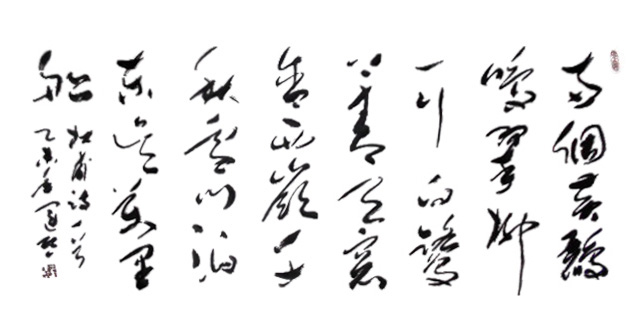 兩個黃鸝
鳴翠柳
一行白鷺
上青天窗
含西嶺千
秋雪門泊
東吳萬里
船
杜甫詩一首
乙未